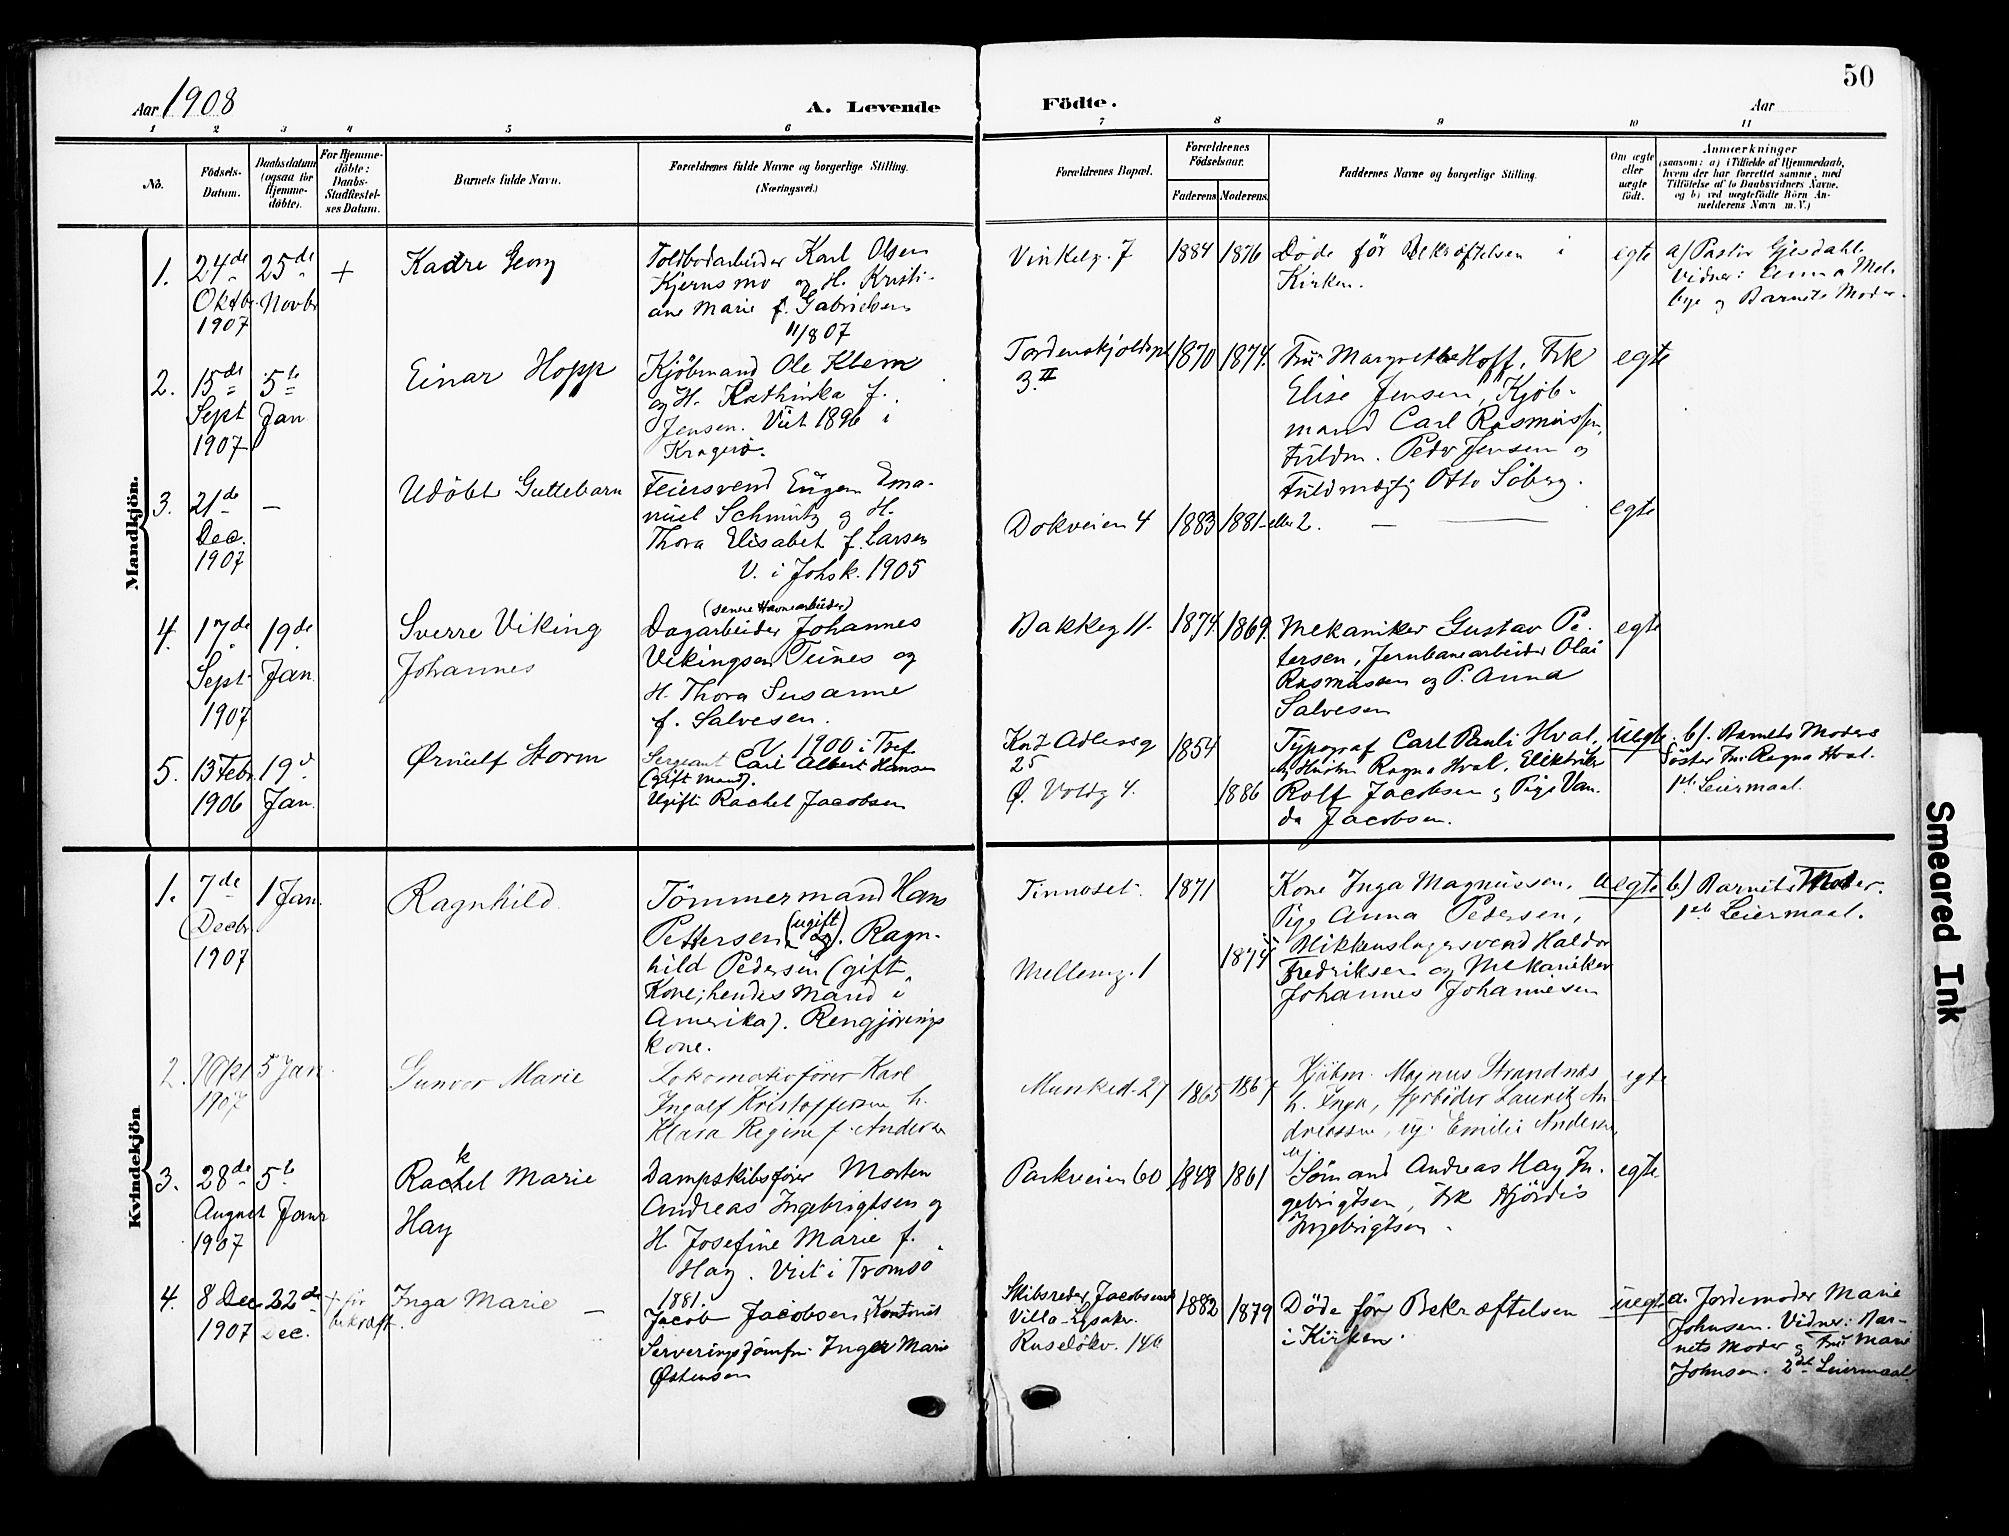 50
Aar 1908
A. Levende
Födte.
Aar
1 2 3 4 5 6 7 8 9 10 11
No.
Födsels-
Datum.
Daabsdatum
(ogsaa for
Hjemme-
döbte).
For Hjemme-
döbte:
Daabs-
Stadfæstel-
ses Datum.
Barnets fulde Navn.
Forældrenes fulde Navne og borgerlige Stilling.
(Næringsvei.)
Forældrenes Bopæl.
Forældrenes
Födselsaar.
Faderens.
Moderens.
Faddernes Navne og borgerlige Stilling.
Om ægte
eller
uægte
födt.
Anmærkninger
(saasom: a) i Tilfælde af Hjemmedaab,
hvem der har forrettet samme, med
Tilföielse af to Daabsvidners Navne.
og b) ved uægtefödte Börn An-
melderens Navn m. V.)
Mandkjön.
1.
24de
Oktbr.
1907
25de
Novbr
+
Kaare Georg
Toldbodarbeider Karl Olsen
Kjernsmo og H. Kristi-
ane Marie f. Gabrielsen
11/8 07
Vinkelg. 7
1884
1876
Døde før Bekræftelsen i
Kirken.
egte
a/ Pastor Gjesdahl.
Vidner: Emma Mel-
bye og Barnets Moder.
2.
15de
Sept
1907
5te
Jan
Einar Hopp
Kjöbmand Ole Klem
og H. Kathinka f.
Jensen. Viet 1896 i
Kragerø.
Tordenskjoldspl
3. II
1870
1874.
Fru Margrethe Hoff, Frk
Elise Jensen, Kjöb-
mand Carl Rasmussen,
Fuldm. Peder Jensen og
Fuldmægtig Otto Söberg.
egte
3.
21de
Dec.
1907
—
Udöbt Guttebarn
Feiersvend Eugen Ema-
nuel Schmutz og H.
Thora Elisabet f. Larsen
V. i Johsk. 1905
Dokveien 4
1883
1881 eller 2.
— —
egte
4.
17de
Sept
1907
19de
Jan.
Sverre Viking
Johannes
(senere Havnearbeider)
Dagarbeider Johannes
Vikingsen Tunes og
H. Thora Susanne
f. Salvesen.
V. 1900 i Tref.
Bakkeg 11.
1874.
1869.
Mekaniker Gustav Pe-
tersen, Jernbanearbeider Olai
Rasmussen og P. Anna
Salvesen
egte
5.
13 Febr.
1906
19d
Jan.
Ørnulf Storm
Sergeant Carl Albert Hansen
(gift mand).
Ugift: Rachel Jacobsen
Kort Adlersg
25
Ø. Voldg 4.
1854
1886
Typograf Carl Pauli Hval,
og Hustru Ragna Hval, Elektriker
Rolf Jacobsen og Pige Van-
da Jacobsen.
uegte
b/. Barnets Moders
Söster Fru Ragna Hval.
1ste Leiermaal.
Kvindekjön.
1.
7de
Decbr.
1907
1 Jan.
Ragnhild
Tömmermand Hans
Pettersen (ugift) og Ragn-
hild Pedersen (gift
Kone; hendes mand i
Amerika). Rengjørings
kone.
Tinnoset.
Mellemg. 1
1871
1874
Kone Inga Magnussen,
Pige Anna Pedersen,
Blikkenslagersvend Haldor
Fredriksen og Mekaniker
Johannes Johannesen
uegte
b) Barnets Moder.
1ste Leiermaal.
2.
Okt
1907
5 Jan
Gunvor Marie
Lokomotivfører Karl
Ingolf Kristoffersen h.
Klara Regine f. Andersen
Munked. 27
1865
1867
Kjöbm. Magnus Strandnæs
h. Inga, Lauritz An-
dreassen, ug. Emilie Andersen,
egte
3.
28de
August
1907
5te
Janr
Rakel Marie
Hay
Dampskibsfører Morten
Andreas Ingebrigtsen og
H. Josefine Marie f.
Hay. Viet i Tromsö
1881.
Parkveien 60
1848
1861
Sömand Andreas Hay In-
gebrigtsen, Frk Hjördis
Ingebrigtsen.
egte
4.
8 Dec
1907
22de
Dec.
+ før
bekræft.
Inga Marie —
Jacob Jacobsen, Kontorist
Serveringsjomfru Inger Marie
Østensen
Skibsreder Jacobsens
Villa-Lysaker.
Ruselökv. 14b
1882
1879
Döde för Bekræftelsen
i Kirken.
uegte
a. Jordemoder Marie
Johnsen. Vidner: Bar-
nets Moder og Fru Marie
Johnsen. 2det Leiermaal.
Smeared Ink